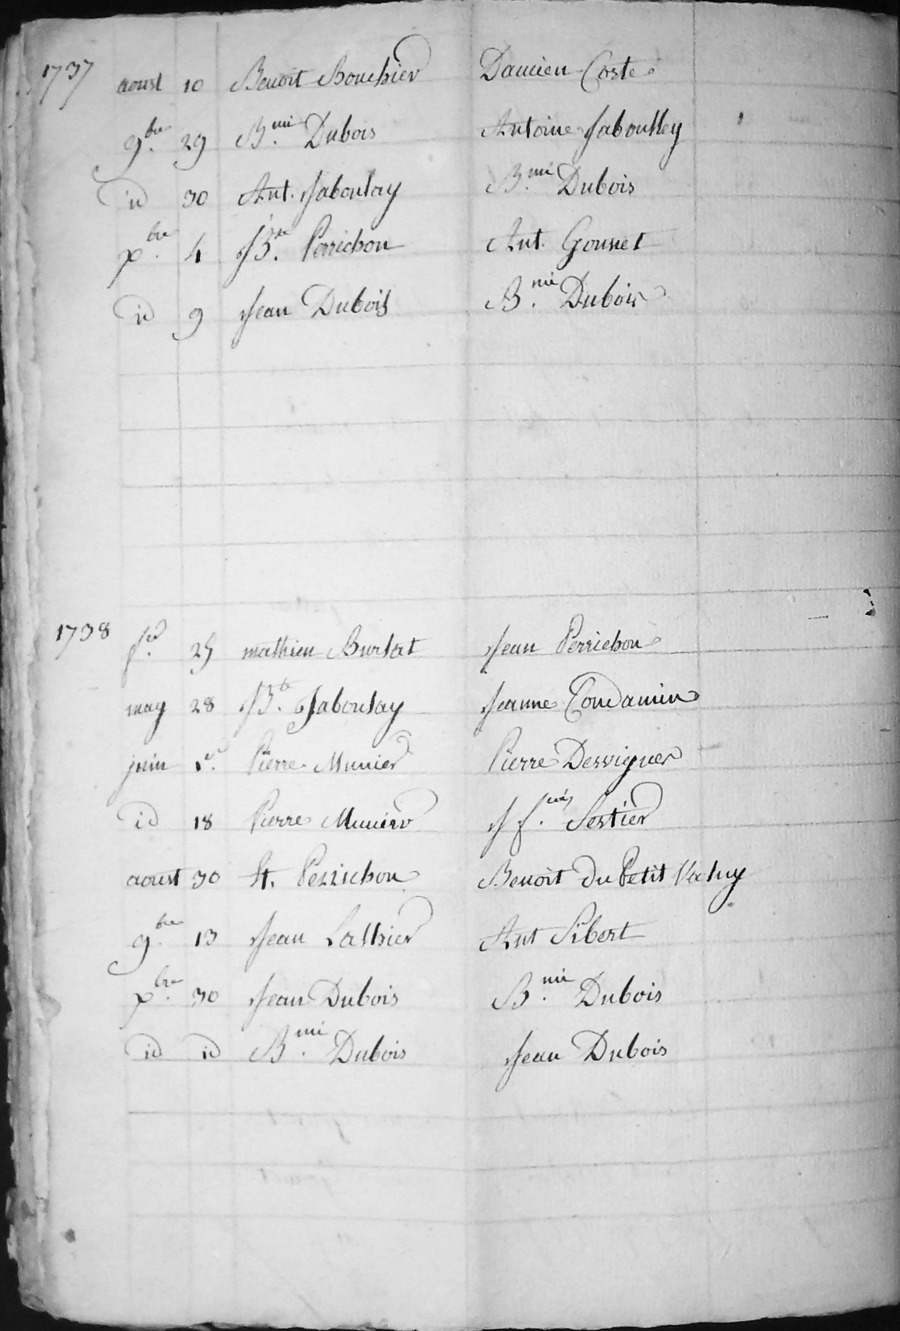 1737 aoust 10 Benoit Bouchier Damien Coste
9.bre 29 B.mi Dubois Antoine Jaboulley
id 30 Ant. Jaboulay B.mi Dubois
x.bre 4 JB.te Perrichon Ant. Gonnet
id 9 Jean Dubois B.mi Dubois
1738 25 mathieu Burlat Jean Perrichon
may 28 JB.te Jaboulay Jeanne Condamin
juin 1.er Pierre Munier Pierre Desvignes
id 18 Pierre Munier J f.cois Sertier
aoust 30 St. Perrichon Benoit du Petit
9.bre 13 Jean Lathier Ant Sibert
x.bre 30 Jean Dubois B.mi Dubois
id id B.mi Dubois Jean Dubois